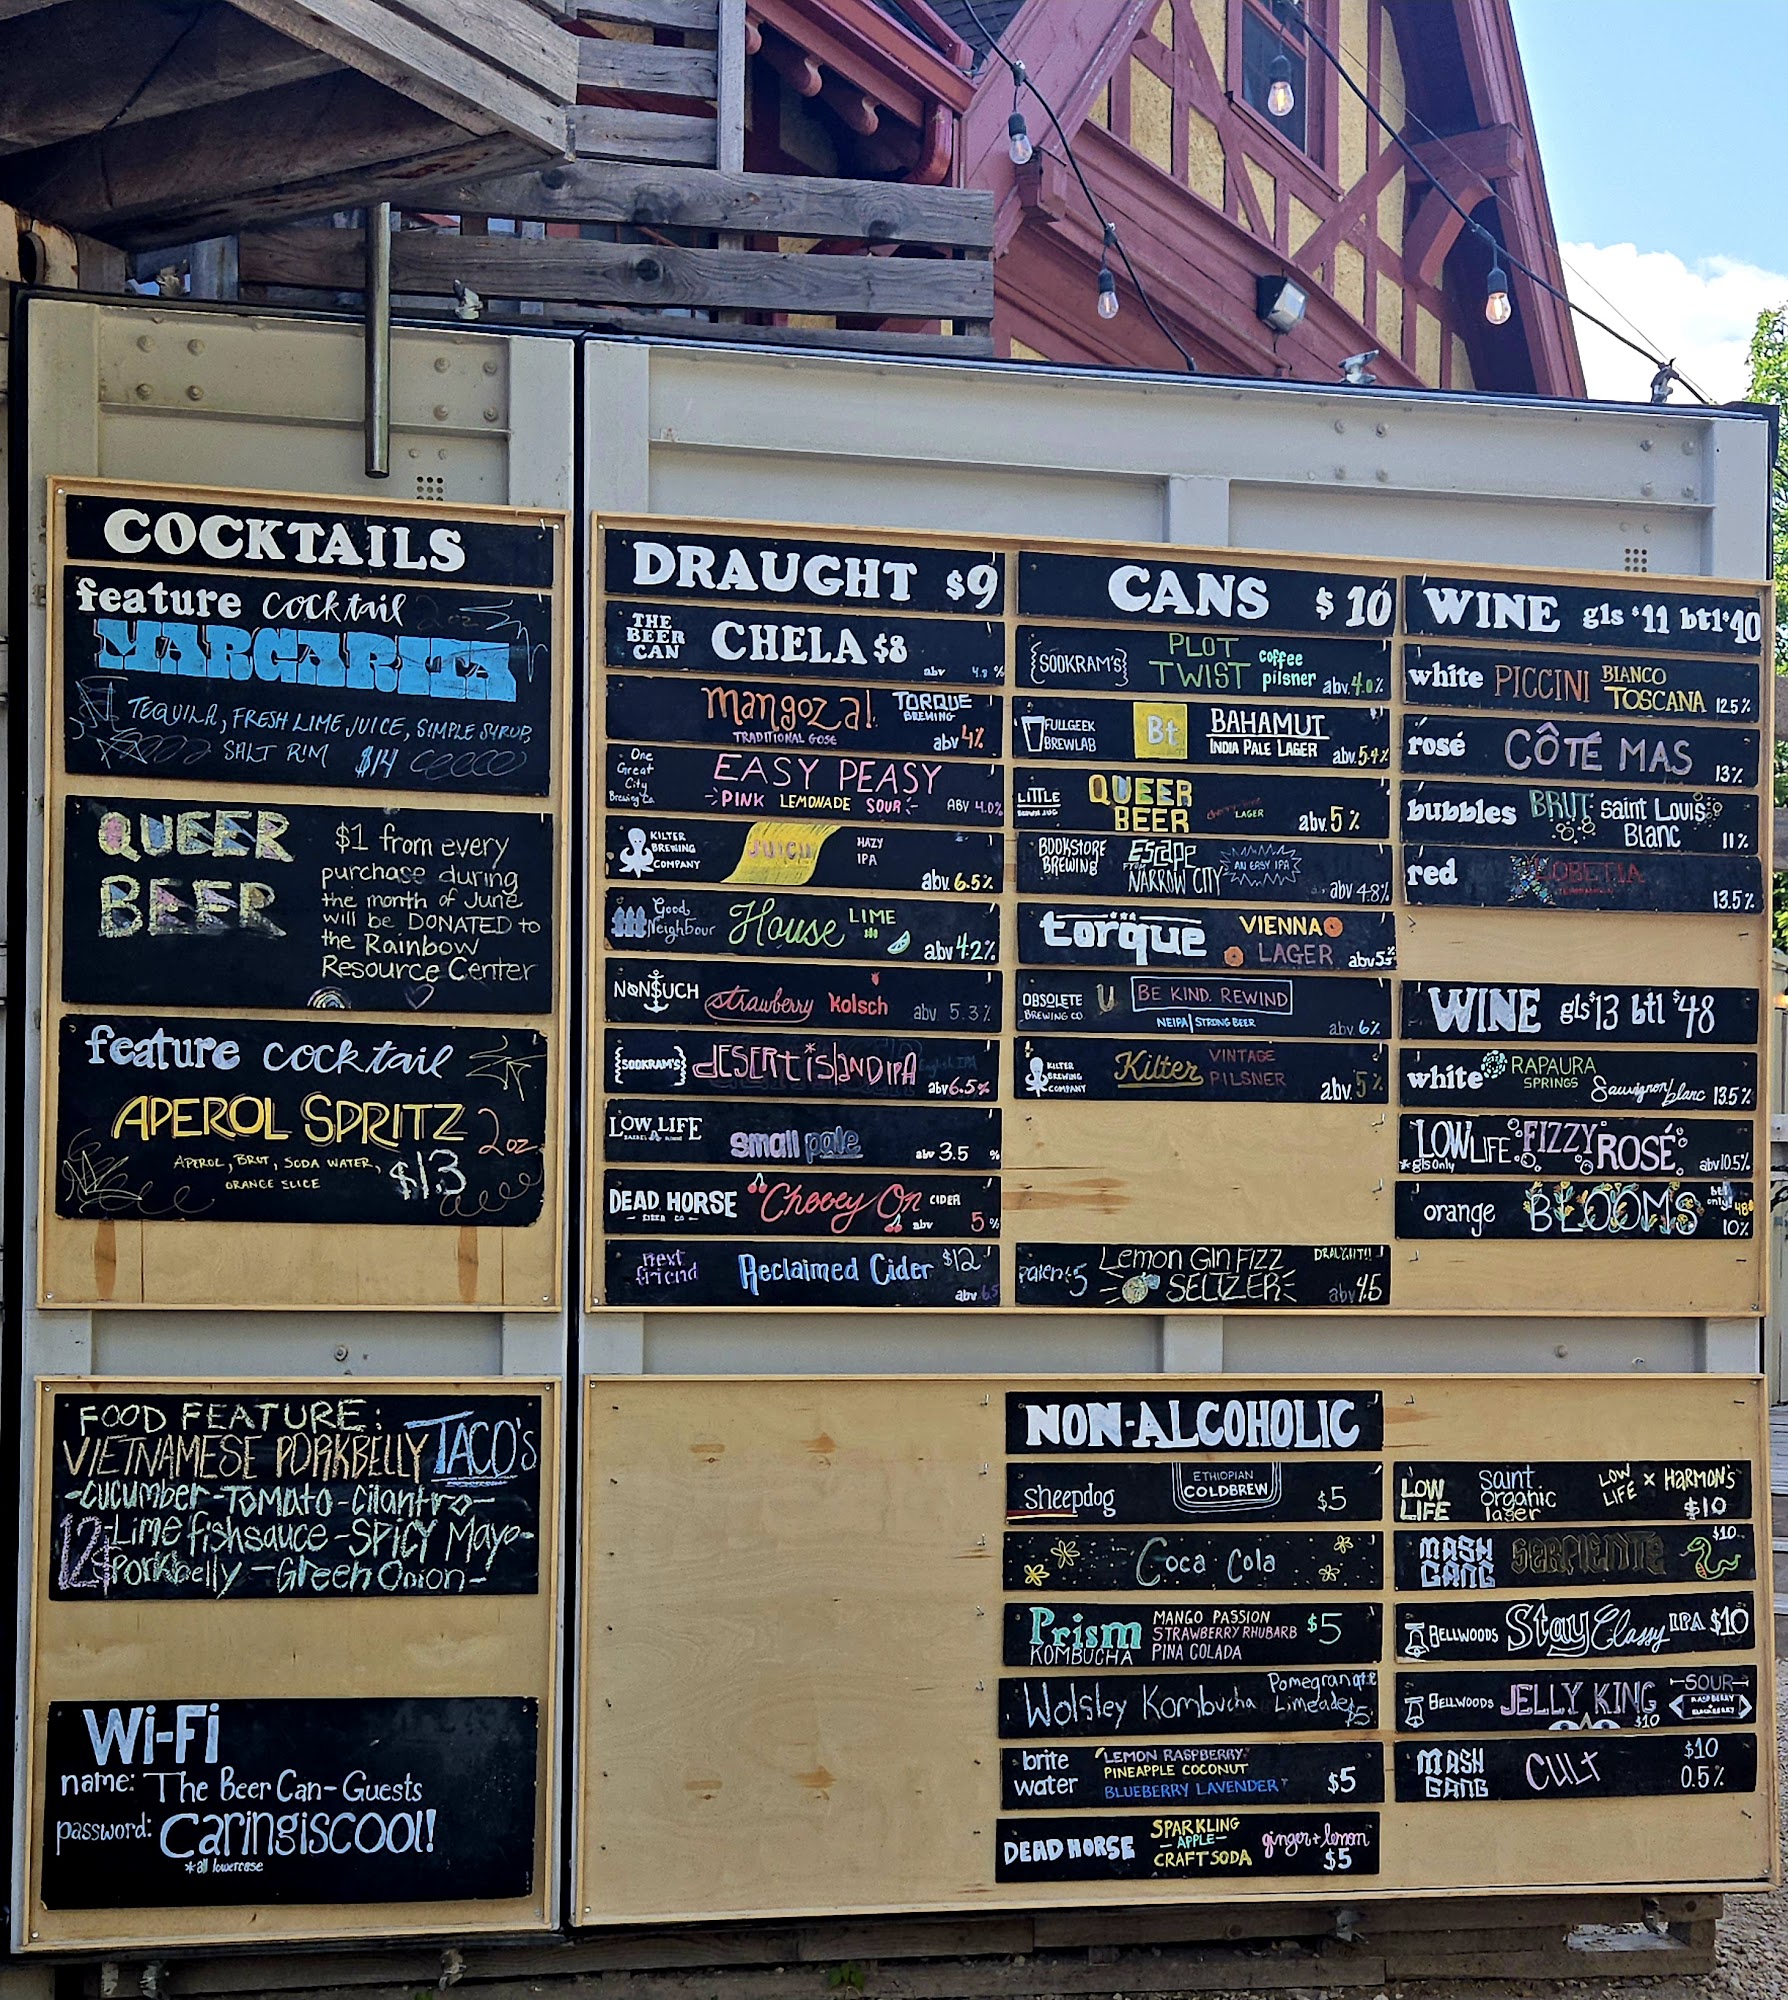 COCKTAILS
feature cocktail 2oz
MARGARITA
TEQUILA, FRESH LIME JUICE, SIMPLE SYRUP,
SALT RIM $14
QUEER
BEER
$1 from every
purchase during
the month of June
will be DONATED to
the Rainbow
Resource Center
feature cocktail
APEROL SPRITZ 2oz.
APEROL, BRUT, SODA WATER,
ORANGE SLICE
$13
FOOD FEATURE:
VIETNAMESE PORKBELLY TACO'S
-CUCUMBER-TOMATO-Cilantro-
-Lime fishsauce-SPICY Mayo-
Porkbelly-Green Onion-
12
Wi-Fi
name: The Beer Can-Guests
password: Caringiscool!
*all lowercase
DRAUGHT $9
THE
BEER
CAN
CHELA $8
abv 4.8 %
mangoza!
TRADITIONAL GOSE
TORQUE
BREWING
abv 4%
One
Great
City
Brewing Co.
EASY PEASY
PINK LEMONADE SOUR
ABV 4.0%
KILTER
BREWING
COMPANY
JUICII
HAZY
IPA
abv. 6.5%
Good
Neighbour
House LIME
abv 4.2%
NONSUCH
strawberry kolsch
abv. 5.3%
{SOOKRAM'S}
dESERT ISLAND IPA
abv 6.5%
LOW LIFE
small pale
abv 3.5 %
DEAD HORSE
CIDER CO
Cheery On CIDER
abv 5 %
next
friend
Reclaimed Cider $12
abv 6.5
CANS $10
{SOOKRAM'S}
PLOT
TWIST
coffee
pilsner
abv. 4.0%
FULLGEEK
BREWLAB
Bt
BAHAMUT
INDIA PALE LAGER
abv. 5.4%
LITTLE
BROWN JUG
QUEER
BEER
LAGER
abv. 5%
BOOKSTORE
BREWING
Escape
FROM
NARROW CITY
AN EASY IPA
abv 4.8%
torque
VIENNA
LAGER
abv 5%
OBSOLETE
BREWING CO.
BE KIND. REWIND
NEIPA | STRONG BEER
abv. 6%
KILTER
BREWING
COMPANY
Kilter
VINTAGE
PILSNER
abv. 5%
Patent 5
Lemon Gin FIZZ
SELTZER
DRAUGHT!!
abv 4.5
WINE gls $11 btl $40
white PICCINI BIANCO
TOSCANA 12.5%
rosé CÔTÉ MAS
13%
bubbles BRUT Saint Louis
Blanc
11%
red LOBETIA
13.5%
WINE gls $13 btl $48
white RAPAURA
SPRINGS
Sauvignon blanc 13.5%
LOW LIFE FIZZY ROSÉ
*gls only
abv 10.5%
orange BLOOMS
btl
only! 48$
10%
NON-ALCOHOLIC
sheepdog
ETHIOPIAN
COLDBREW
$5
Coca Cola
Prism
KOMBUCHA
MANGO PASSION
STRAWBERRY RHUBARB
PINA COLADA
$5
Wolsley Kombucha
Pomegranate
Limeade $5
brite
water
LEMON RASPBERRY
PINEAPPLE COCONUT
BLUEBERRY LAVENDER
$5
DEAD HORSE
SPARKLING
-APPLE-
CRAFT SODA
ginger + lemon
$5
LOW
LIFE
saint
organic
lager
LOW
LIFE X HARMON'S
$10
MASH
GANG
SERPIENTE
$10
BELLWOODS Stay Classy IPA $10
BELLWOODS JELLY KING
$10
SOUR
RASPBERRY
BLACKBERRY
MASH
GANG
CULT
$10
0.5%